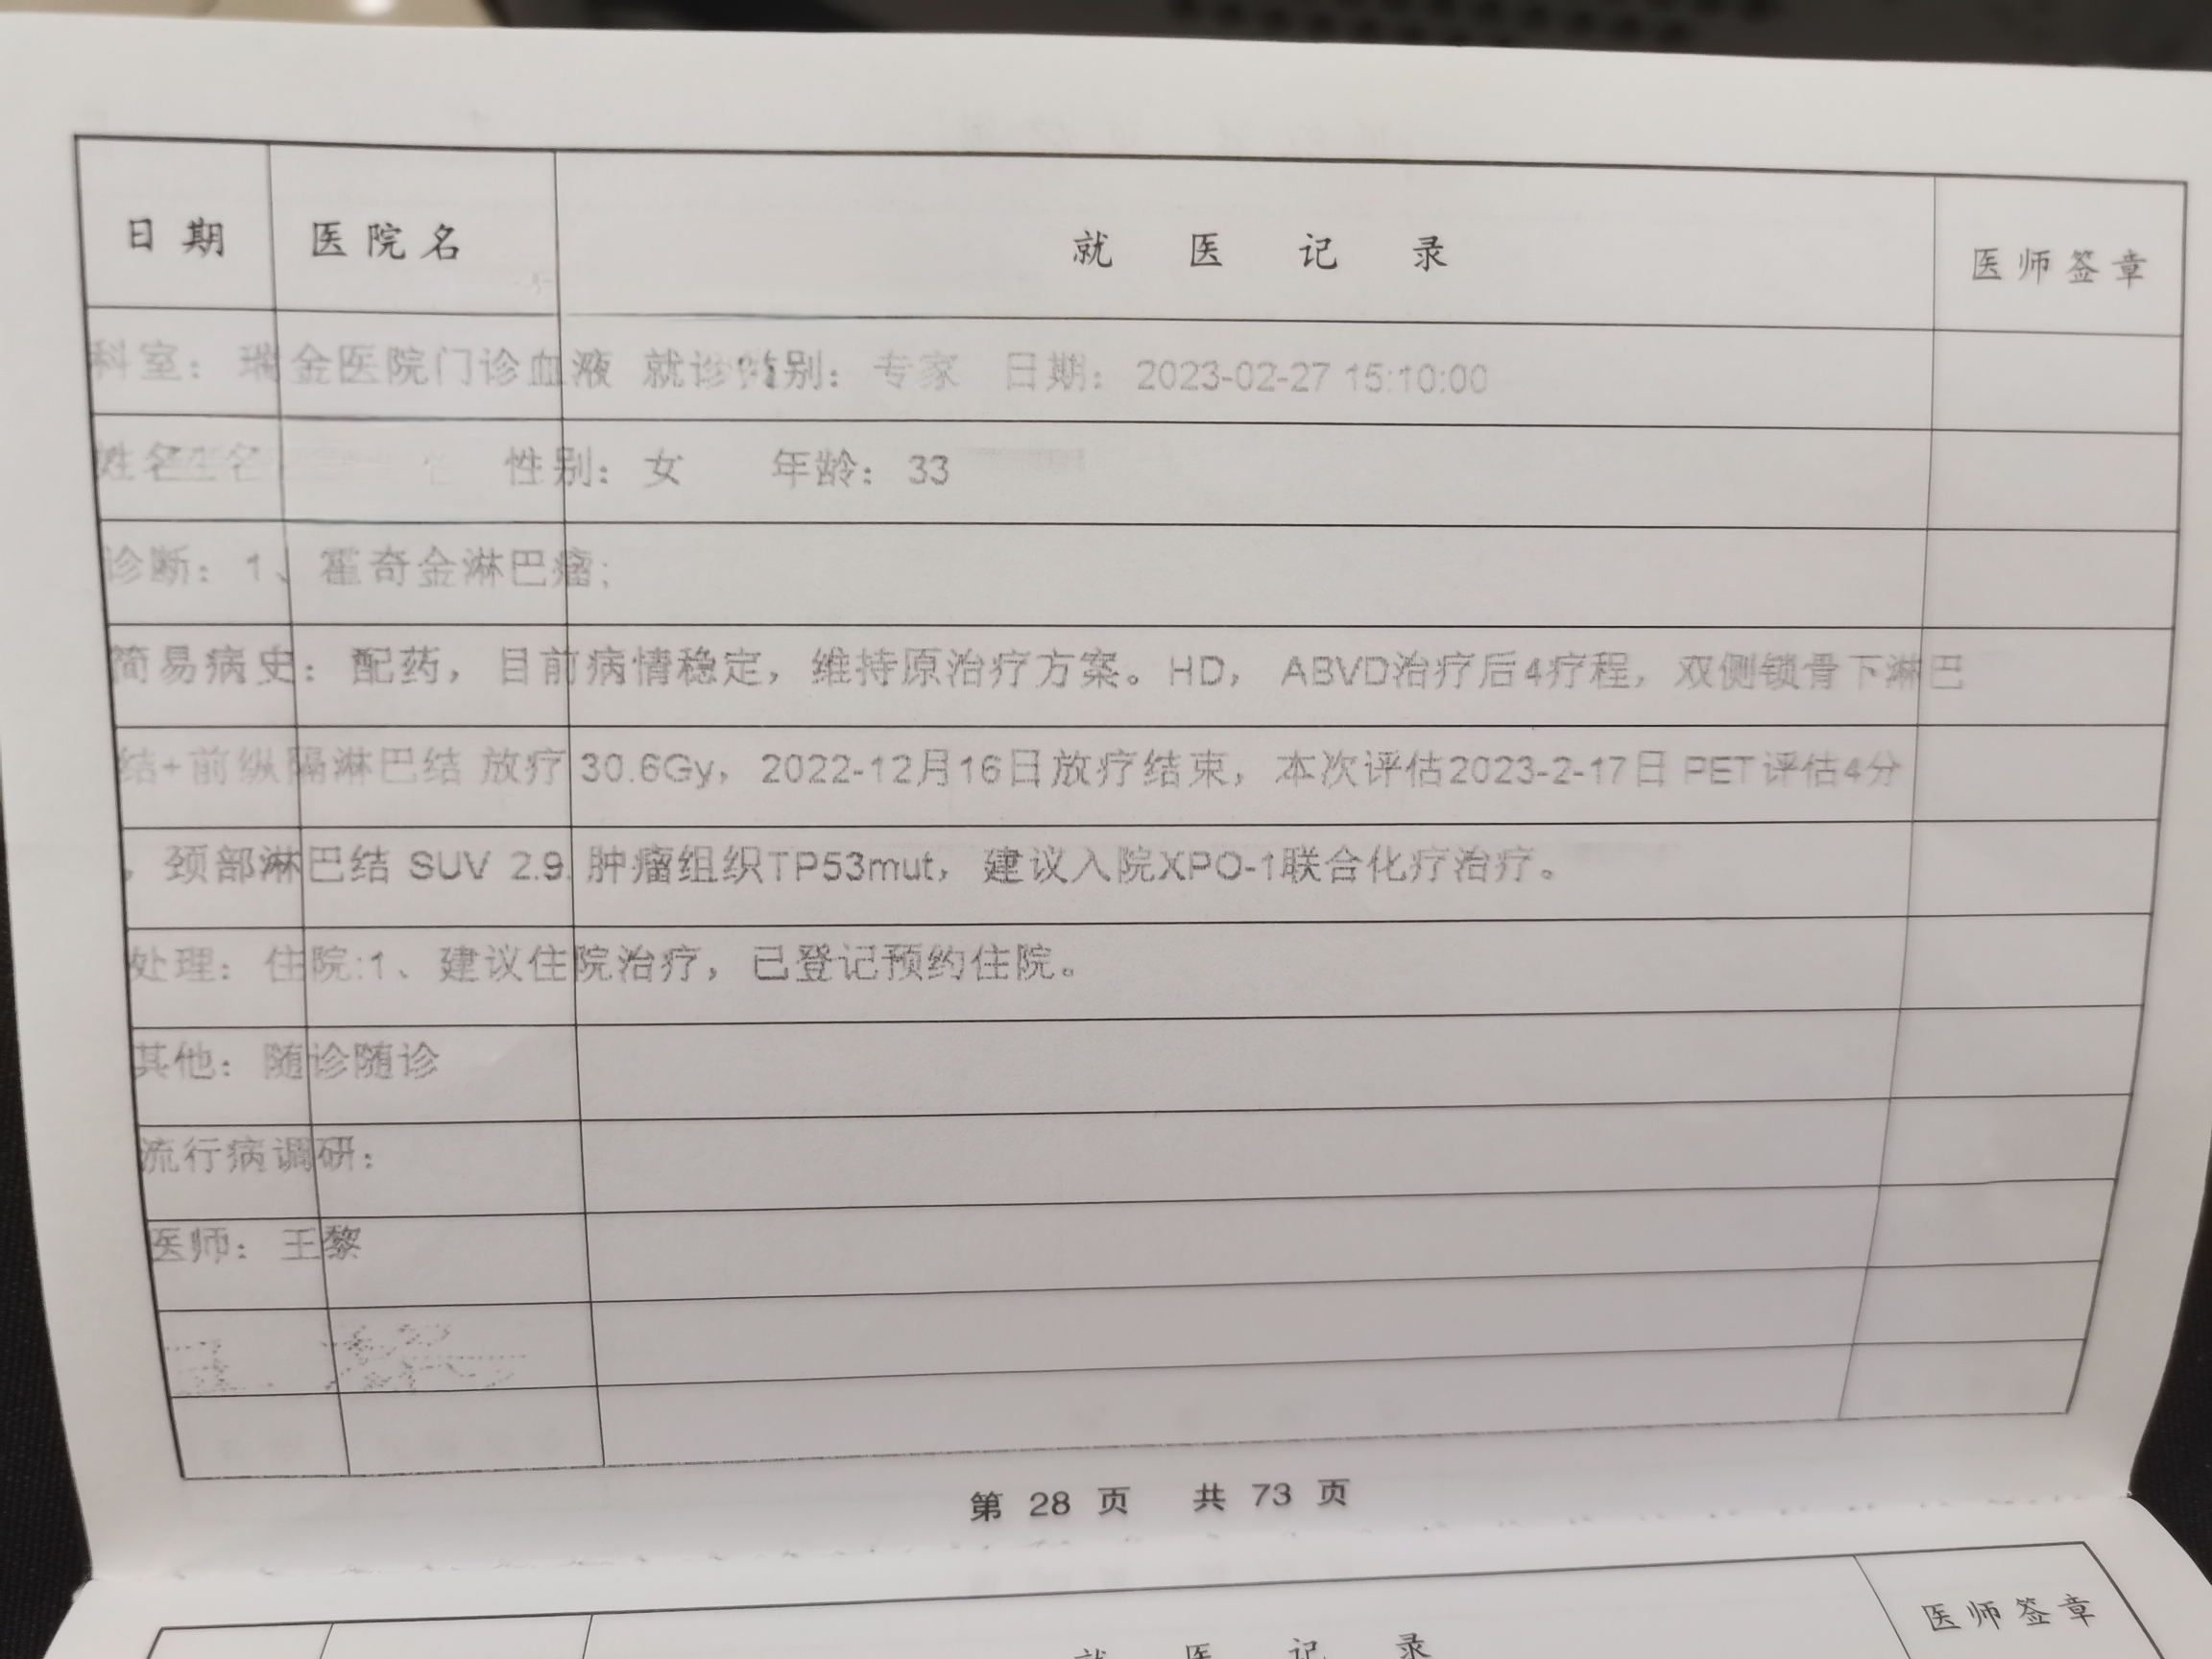 日期 医院名 就医记录 医师签章
科室：瑞金医院门诊血液 就诊类别：专家 日期：2023-02-27 15:10:00
姓名 性别：女 年龄：33
诊断：1、霍奇金淋巴瘤;
简易病史：配药，目前病情稳定，维持原治疗方案。HD， ABVD治疗后4疗程，双侧锁骨下淋巴
结+前纵隔淋巴结 放疗 30.6Gy，2022-12月16日放疗结束，本次评估2023-2-17日 PET评估4分
，颈部淋巴结 SUV 2.9. 肿瘤组织TP53mut，建议入院XPO-1联合化疗治疗。
处理：住院:1、建议住院治疗，已登记预约住院。
其他：随诊随诊
流行病调研：
医师：王黎
第 28 页 共 73 页
就医记录 医师签章